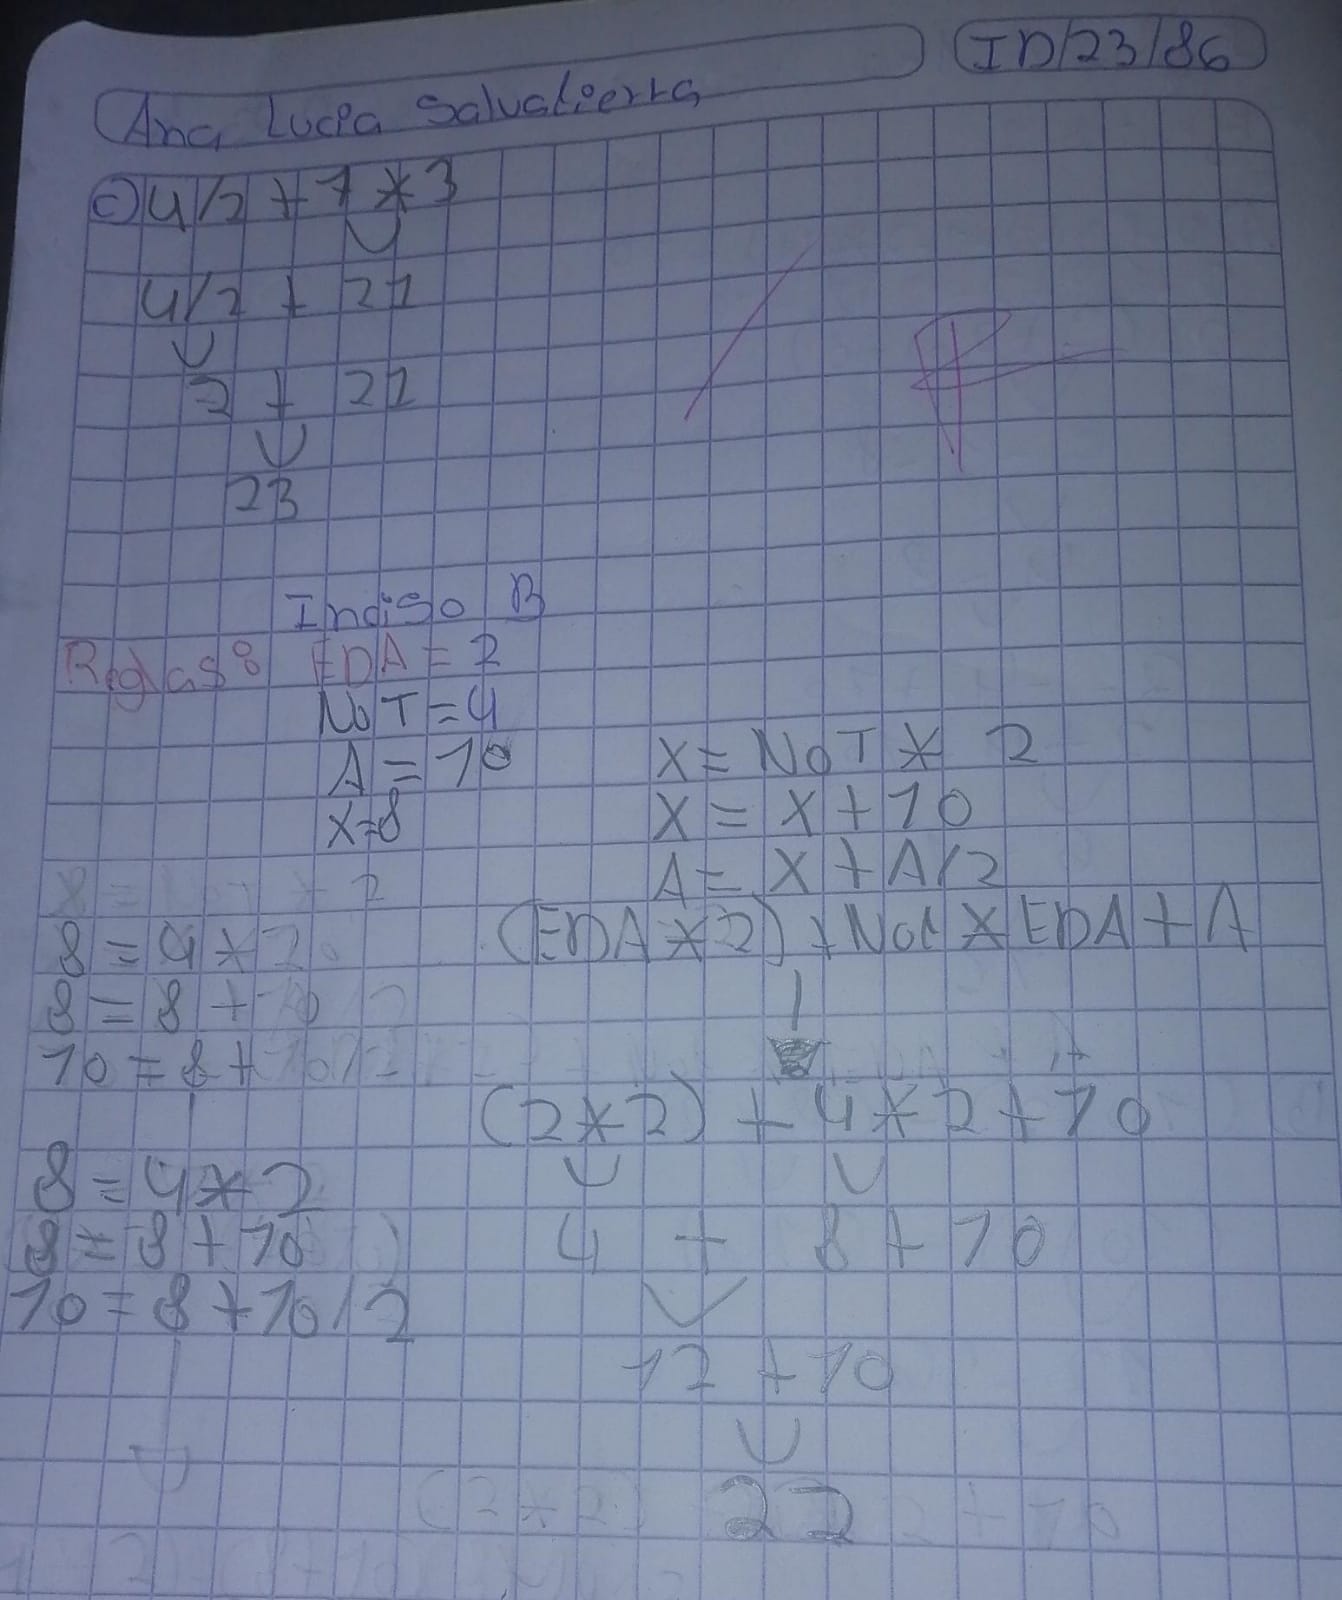 ID/23/86
Ana Lucia Salvatierra
c) 4/2 + 7 * 3
4/2 + 21
2 + 21
23
Indiso B
Reglas: EDA = 2
NoT = 4
A = 10
X = 8
X = NoT * 2
X = X + 10
A = X + A/2
(EDA * 2) + Not * EDA + A
8 = 4 * 2
8 = 8 + 10
10 = 8 + 10/2
(2*2) + 4*2 + 10
8 = 4*2
8 = 8 + 10
10 = 8 + 10/2
4 + 8 + 10
12 + 10
22